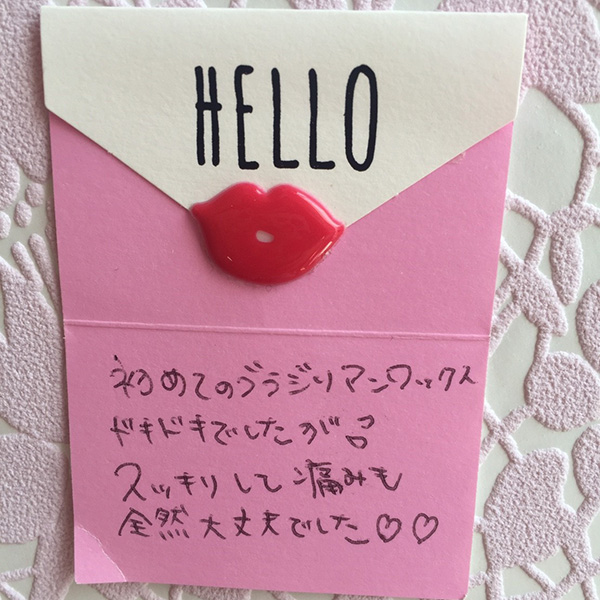 HELLO
初めてのブラジリアンワックス
ドキドキでしたが
スッキリして痛みも
全然大丈夫でした♡♡